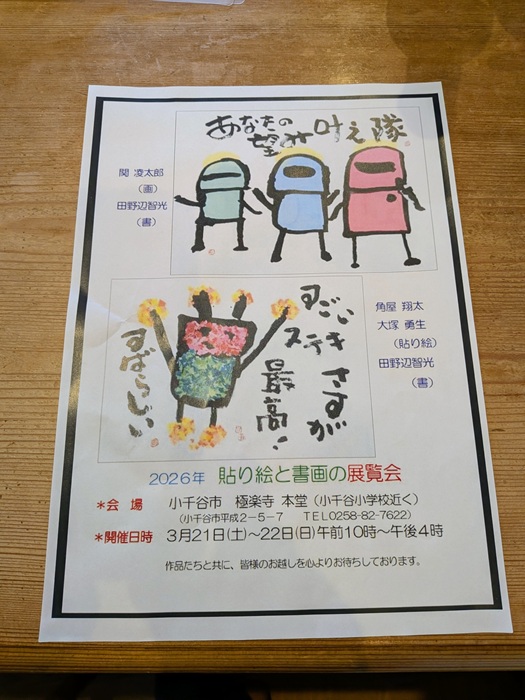 あなたの
望み叶え隊
関 凌太郎
(画)
田野辺智光
(書)
すごい
ステキ さすが
最高!
すばらしい
角屋 翔太
大塚 勇生
(貼り絵)
田野辺智光
(書)
2026年 貼り絵と書画の展覧会
*会 場 小千谷市 極楽寺 本堂(小千谷小学校近く)
(小千谷市平成2-5-7 TEL0258-82-7622)
*開催日時 3月21日(土)~22日(日)午前10時~午後4時
作品たちと共に、皆様のお越しを心よりお待ちしております。